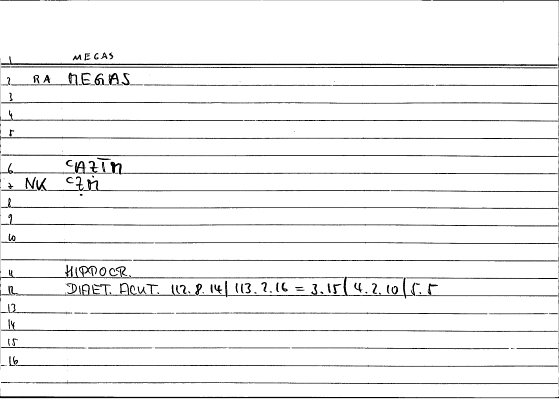 1 MEGAS
2 RA MEGAS
3
4
5
6 ʿAẒĪM
7 NK ʿẒM
8
9
10
11 HIPPOCR.
12 DIAET. ACUT. 112.8.14 | 113.2.16 = 3.15 | 4.2.10 | 5.5
13
14
15
16